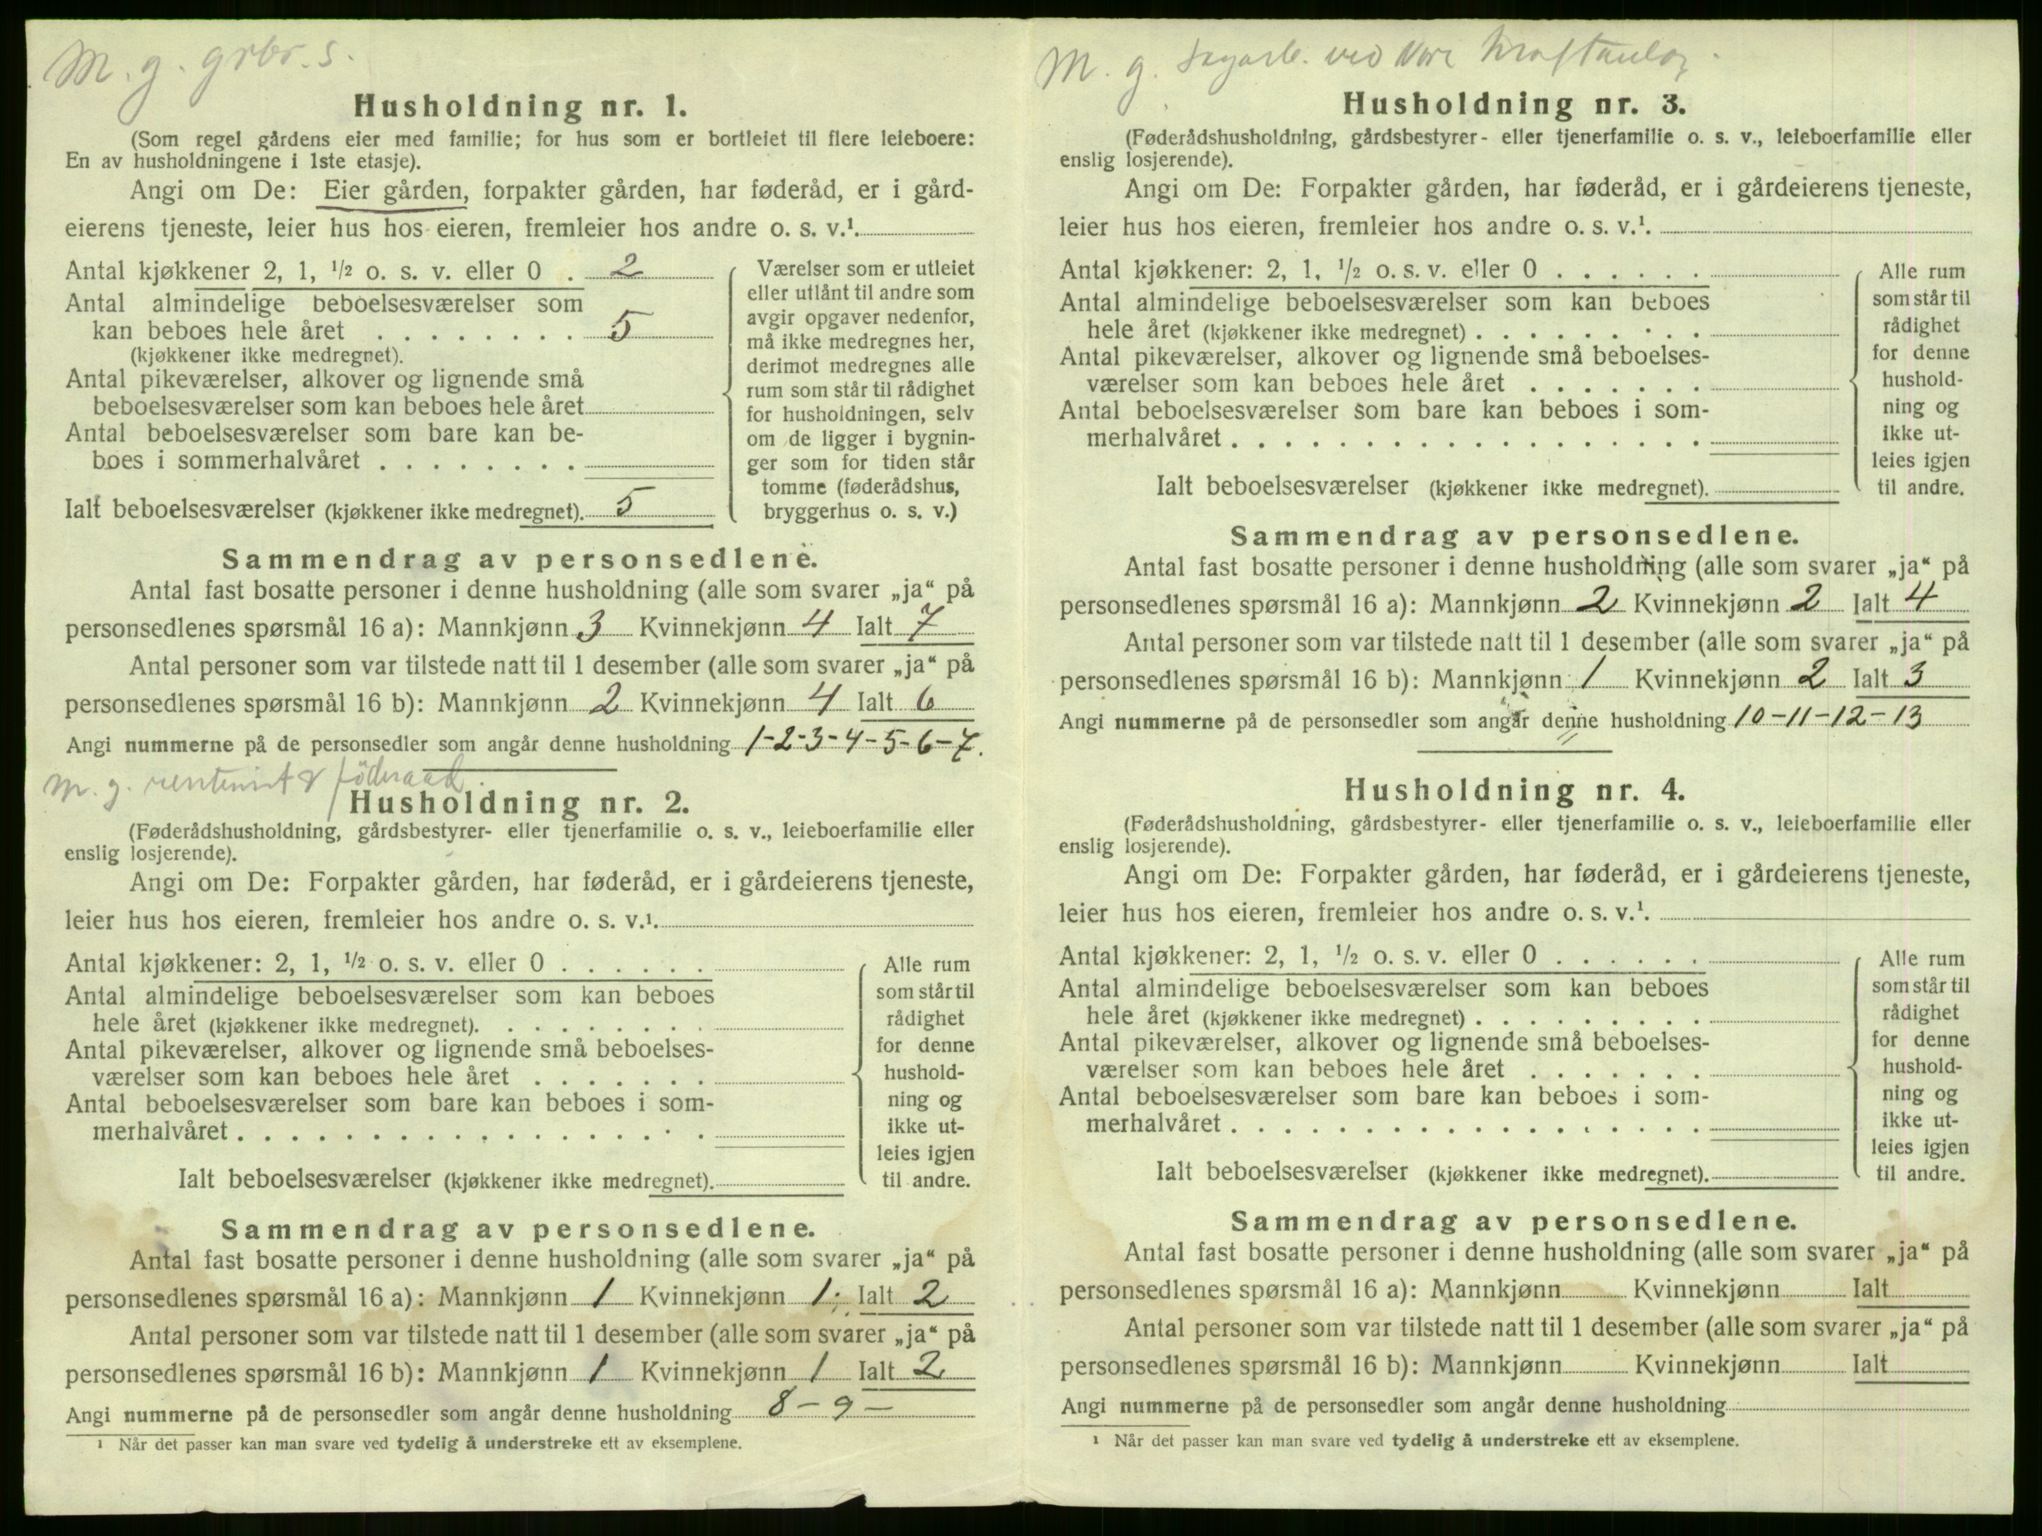 M. g. grbr. s.
Husholdning nr. 1.
(Som regel gårdens eier med familie; for hus som er bortleiet til flere leieboere:
En av husholdningene i 1ste etasje).
Angi om De: Eier gården, forpakter gården, har føderåd, er i gård-
eierens tjeneste, leier hus hos eieren, fremleier hos andre o. s. v.¹.
Antal kjøkkener 2, 1, ½ o. s. v. eller 0 . 2
Antal almindelige beboelsesværelser som
kan beboes hele året . . . . . . . . 5
(kjøkkener ikke medregnet).
Antal pikeværelser, alkover og lignende små
beboelsesværelser som kan beboes hele året
Antal beboelsesværelser som bare kan be-
boes i sommerhalvåret . . . . . . . .
Ialt beboelsesværelser (kjøkkener ikke medregnet). 5
Værelser som er utleiet
eller utlånt til andre som
avgir opgaver nedenfor,
må ikke medregnes her,
derimot medregnes alle
rum som står til rådighet
for husholdningen, selv
om de ligger i bygnin-
ger som for tiden står
tomme (føderådshus,
bryggerhus o. s. v.)
Sammendrag av personsedlene.
Antal fast bosatte personer i denne husholdning (alle som svarer „ja“ på
personsedlenes spørsmål 16 a): Mannkjønn 3 Kvinnekjønn 4 Ialt 7
Antal personer som var tilstede natt til 1 desember (alle som svarer „ja“ på
personsedlenes spørsmål 16 b): Mannkjønn 2 Kvinnekjønn 4 Ialt 6
Angi nummerne på de personsedler som angår denne husholdning 1-2-3-4-5-6-7.
M. g. rentenist & föderaad.
Husholdning nr. 2.
(Føderådshusholdning, gårdsbestyrer- eller tjenerfamilie o. s. v., leieboerfamilie eller
enslig losjerende).
Angi om De: Forpakter gården, har føderåd, er i gårdeierens tjeneste,
leier hus hos eieren, fremleier hos andre o. s. v.¹.
Antal kjøkkener: 2, 1, ½ o. s. v. eller 0 . . . . . .
Antal almindelige beboelsesværelser som kan beboes
hele året (kjøkkener ikke medregnet). . . . . . . . .
Antal pikeværelser, alkover og lignende små beboelses-
værelser som kan beboes hele året . . . . . . .
Antal beboelsesværelser som bare kan beboes i som-
merhalvåret . . . . . . . . . . . . . . . . . .
Ialt beboelsesværelser (kjøkkener ikke medregnet).
Alle rum
som står til
rådighet
for denne
hushold-
ning og
ikke ut-
leies igjen
til andre.
Sammendrag av personsedlene.
Antal fast bosatte personer i denne husholdning (alle som svarer „ja“ på
personsedlenes spørsmål 16 a): Mannkjønn 1 Kvinnekjønn 1 Ialt 2
Antal personer som var tilstede natt til 1 desember (alle som svarer „ja“ på
personsedlenes spørsmål 16 b): Mannkjønn 1 Kvinnekjønn 1 Ialt 2
Angi nummerne på de personsedler som angår denne husholdning 8 - 9 -
¹ Når det passer kan man svare ved tydelig å understreke ett av eksemplene.
M. g. ved Nore Kraftanlæg.
Husholdning nr. 3.
(Føderådshusholdning, gårdsbestyrer- eller tjenerfamilie o. s. v., leieboerfamilie eller
enslig losjerende).
Angi om De: Forpakter gården, har føderåd, er i gårdeierens tjeneste,
leier hus hos eieren, fremleier hos andre o. s. v.¹.
Antal kjøkkener: 2, 1, ½ o. s. v. eller 0 . . . . . .
Antal almindelige beboelsesværelser som kan beboes
hele året (kjøkkener ikke medregnet) . . . . . . . . .
Antal pikeværelser, alkover og lignende små beboelses-
værelser som kan beboes hele året . . . . . . .
Antal beboelsesværelser som bare kan beboes i som-
merhalvåret . . . . . . . . . . . . . . . . . .
Ialt beboelsesværelser (kjøkkener ikke medregnet).
Alle rum
som står til
rådighet
for denne
hushold-
ning og
ikke ut-
leies igjen
til andre.
Sammendrag av personsedlene.
Antal fast bosatte personer i denne husholdning (alle som svarer „ja“ på
personsedlenes spørsmål 16 a): Mannkjønn 2 Kvinnekjønn 2 Ialt 4
Antal personer som var tilstede natt til 1 desember (alle som svarer „ja“ på
personsedlenes spørsmål 16 b): Mannkjønn 1 Kvinnekjønn 2 Ialt 3
Angi nummerne på de personsedler som angår denne husholdning 10-11-12-13
Husholdning nr. 4.
(Føderådshusholdning, gårdsbestyrer- eller tjenerfamilie o. s. v., leieboerfamilie eller
enslig losjerende).
Angi om De: Forpakter gården, har føderåd, er i gårdeierens tjeneste,
leier hus hos eieren, fremleier hos andre o. s. v.¹.
Antal kjøkkener: 2, 1, ½ o. s. v. eller 0 . . . . . .
Antal almindelige beboelsesværelser som kan beboes
hele året (kjøkkener ikke medregnet) . . . . . . . . .
Antal pikeværelser, alkover og lignende små beboelses-
værelser som kan beboes hele året . . . . . . .
Antal beboelsesværelser som bare kan beboes i som-
merhalvåret . . . . . . . . . . . . . . . . . .
Ialt beboelsesværelser (kjøkkener ikke medregnet).
Alle rum
som står til
rådighet
for denne
hushold-
ning og
ikke ut-
leies igjen
til andre.
Sammendrag av personsedlene.
Antal fast bosatte personer i denne husholdning (alle som svarer „ja“ på
personsedlenes spørsmål 16 a): Mannkjønn Kvinnekjønn Ialt
Antal personer som var tilstede natt til 1 desember (alle som svarer „ja“ på
personsedlenes spørsmål 16 b): Mannkjønn Kvinnekjønn Ialt
Angi nummerne på de personsedler som angår denne husholdning
¹ Når det passer kan man svare ved tydelig å understreke ett av eksemplene.